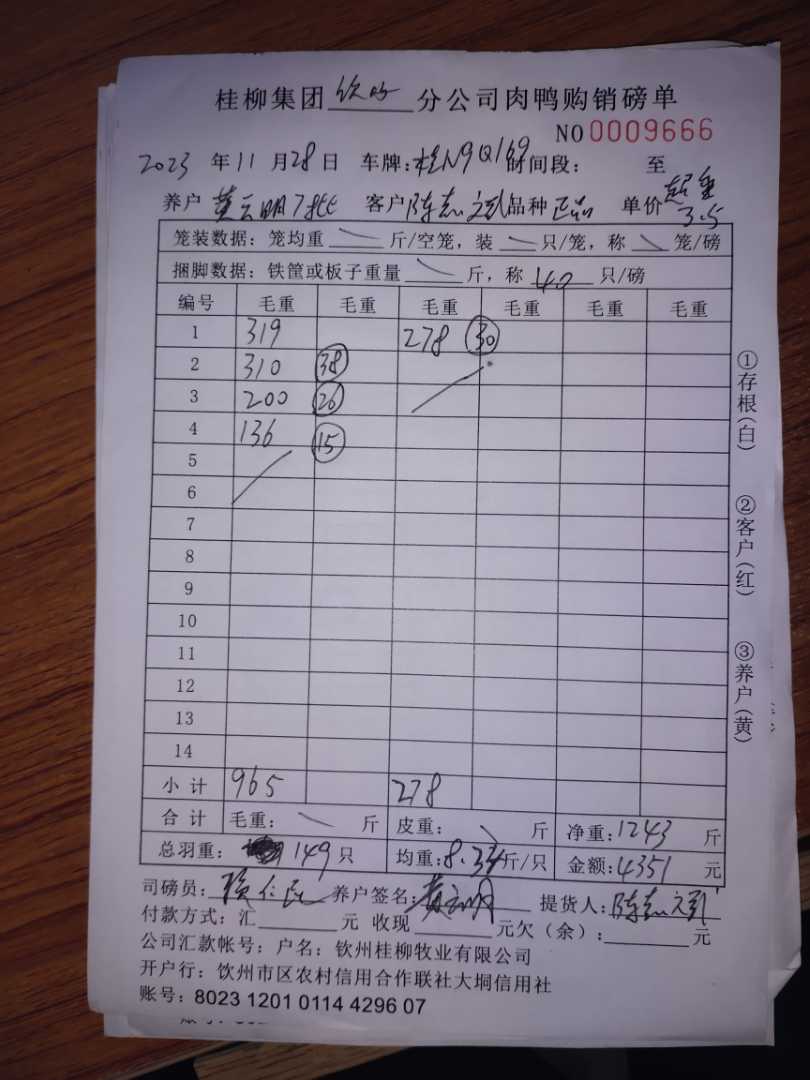 桂柳集团钦州分公司肉鸭购销磅单
NO 0009666
2023 年 11 月 28 日 车牌:桂N9Q169 时间段: 至
养户 黄云明 客户 陈志 品种 正品 单价 3.5
笼装数据:笼均重 斤/空笼,装 只/笼,称 笼/磅
捆脚数据:铁筐或板子重量 斤,称 40 只/磅
编号 毛重 毛重 毛重 毛重 毛重 毛重
1 319 278 30
2 310 38
3 200 26
4 136 15
5
6
7
8
9
10
11
12
13
14
小计 965 278
合计 毛重: 斤 皮重: 斤 净重:1243 斤
总羽重: 149 只 均重:8.34斤/只 金额:4351 元
司磅员: 养户签名:黄云明 提货人:陈志
付款方式:汇 元 收现 元欠(余): 元
公司汇款帐号:户名:钦州桂柳牧业有限公司
开户行:饮州市区农村信用合作联社大垌信用社
账号:8023 1201 0114 4296 07
①存根(白)
②客户(红)
③养户(黄)